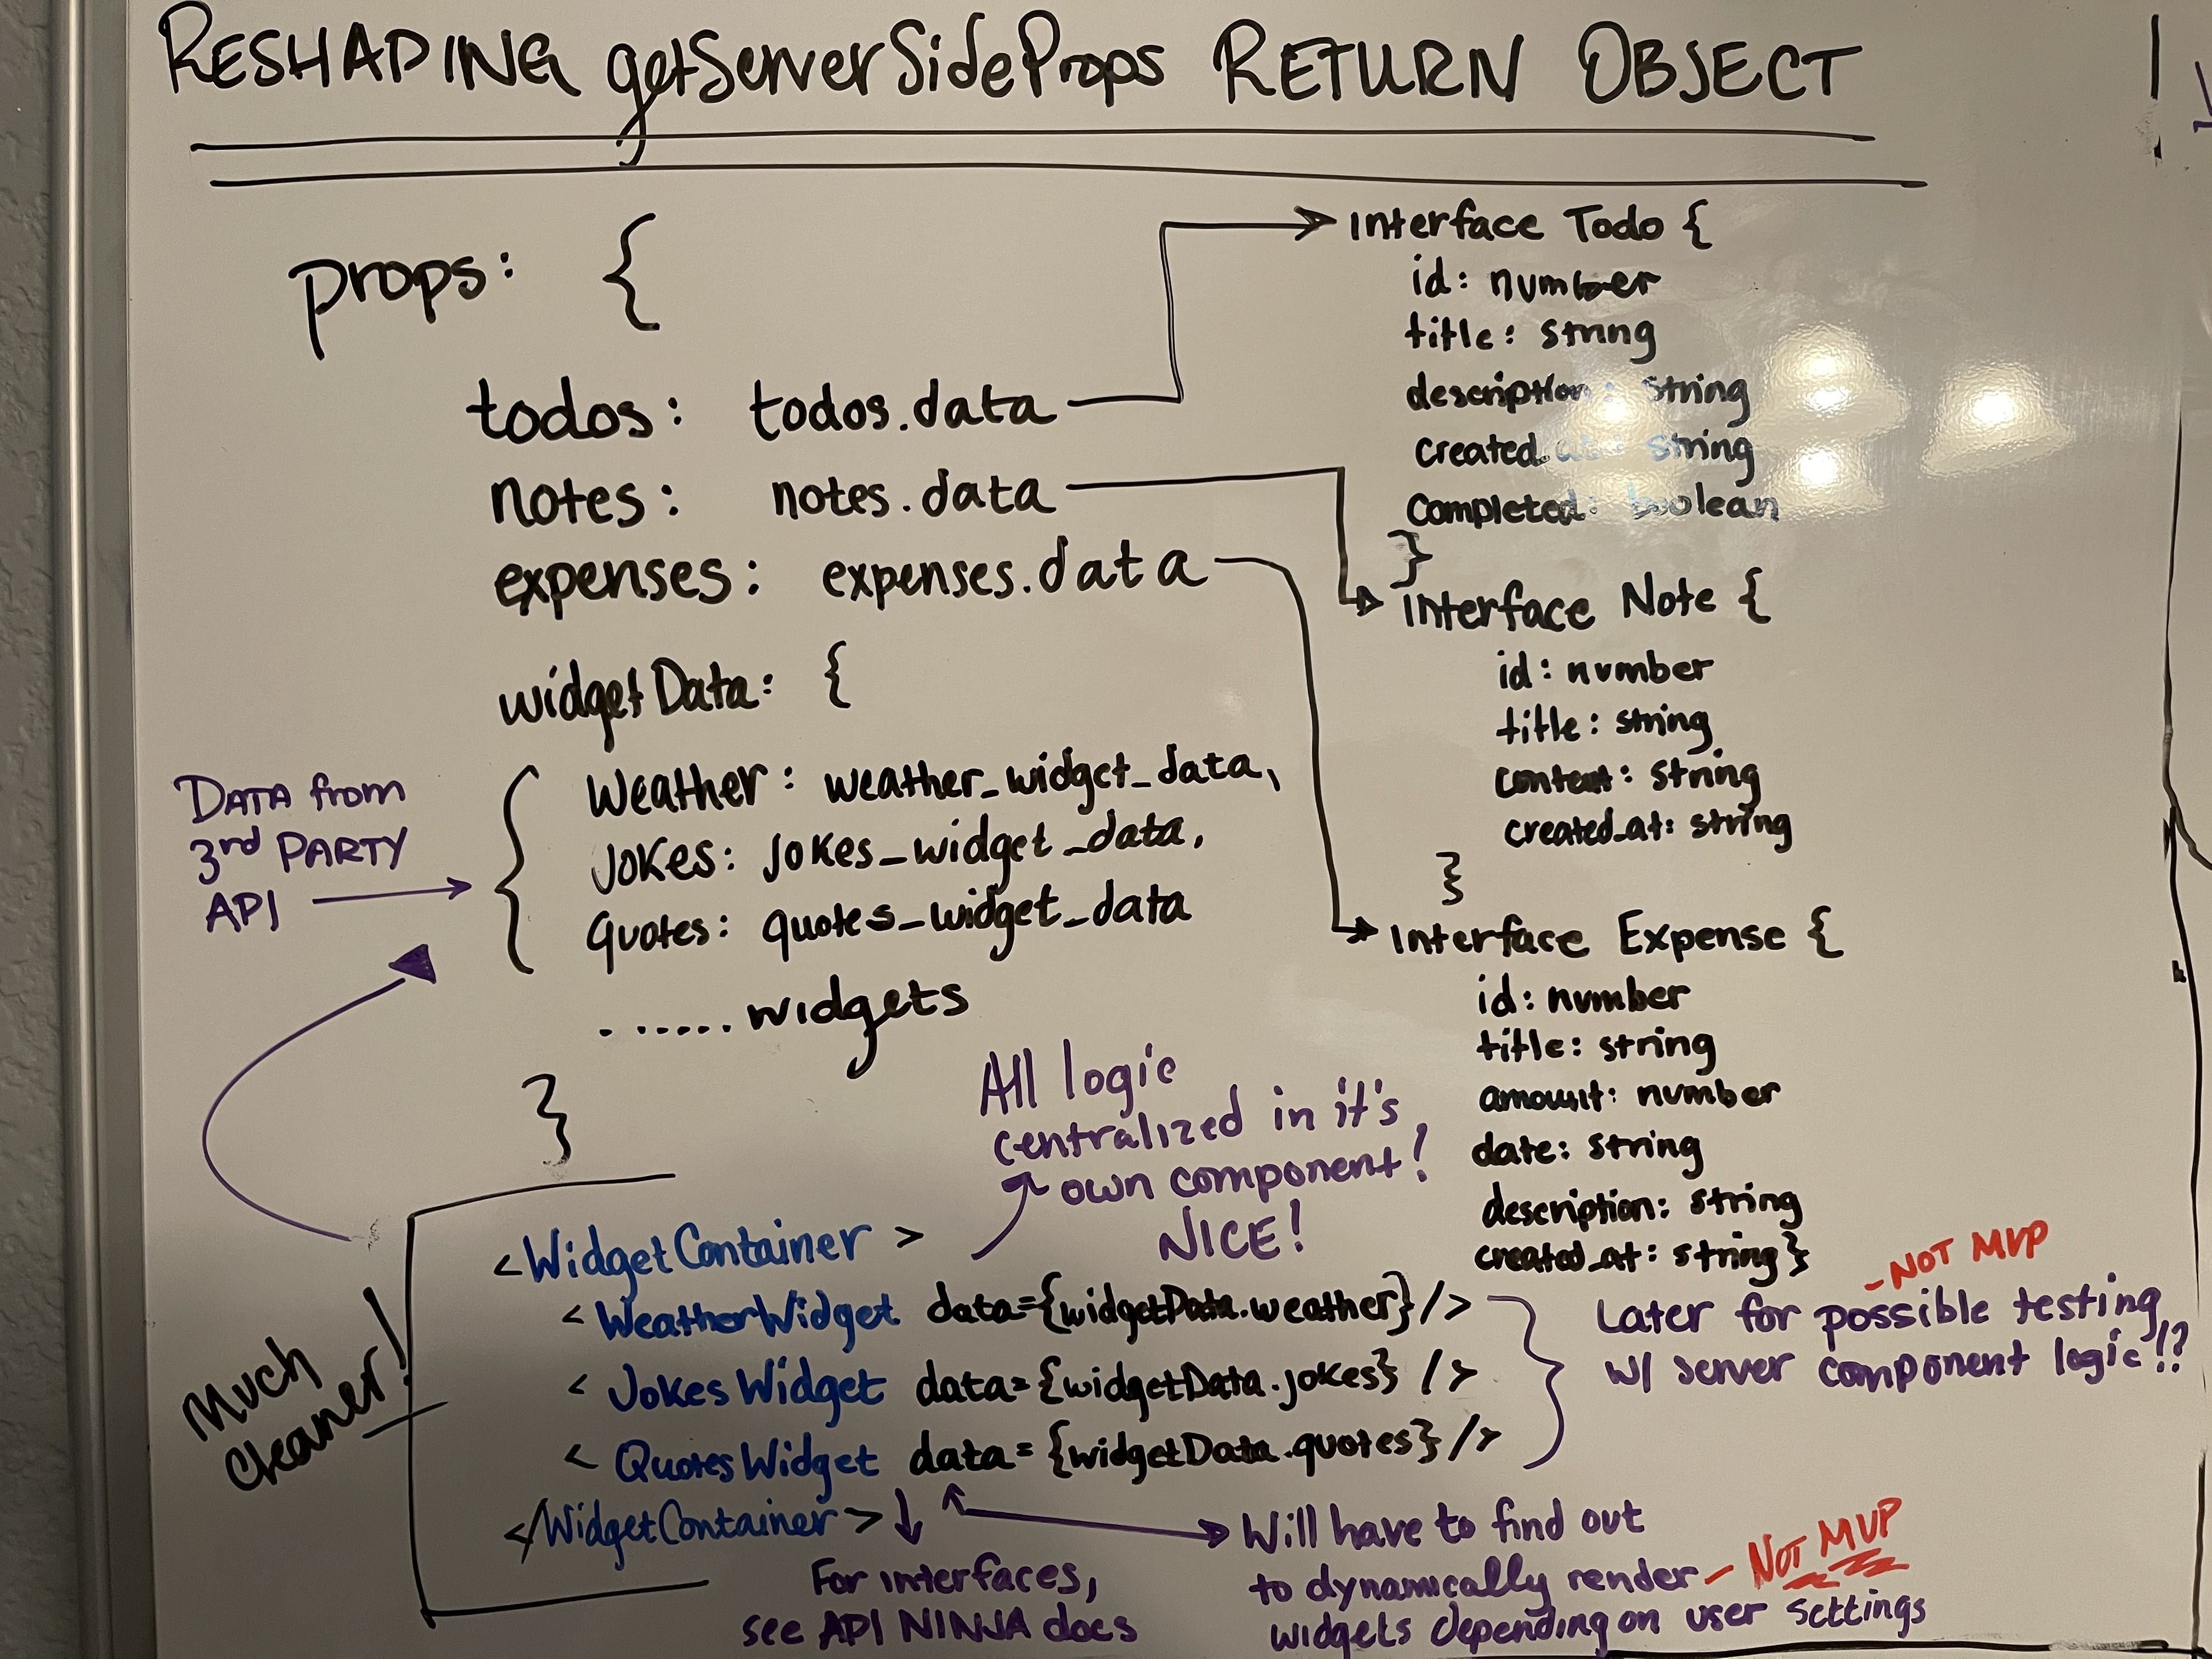 RESHAPING getServerSideProps RETURN OBJECT
props: {
todos: todos.data
notes: notes.data
expenses: expenses.data
widgetData: {
Weather: weather_widget_data,
Jokes: jokes_widget_data,
Quotes: quotes_widget_data
.......widgets
}
DATA from
3rd PARTY
API
Interface Todo {
id: number
title: string
description: string
created_at: string
Completed: boolean
}
Interface Note {
id: number
title: string
content: string
created_at: string
}
Interface Expense {
id: number
title: string
amount: number
date: string
description: string
created_at: string}
All logic
centralized in it's
own component!
NICE!
Much
cleaner!
<WidgetContainer >
<WeatherWidget data={widgetData.weather}/>
<JokesWidget data={widgetData.jokes} />
<QuotesWidget data={widgetData.quotes}/>
</WidgetContainer>
- NOT MVP
Later for possible testing
w/ server component logic!?
For interfaces,
see API NINJA docs
Will have to find out
to dynamically render - NOT MVP
widgets depending on user settings